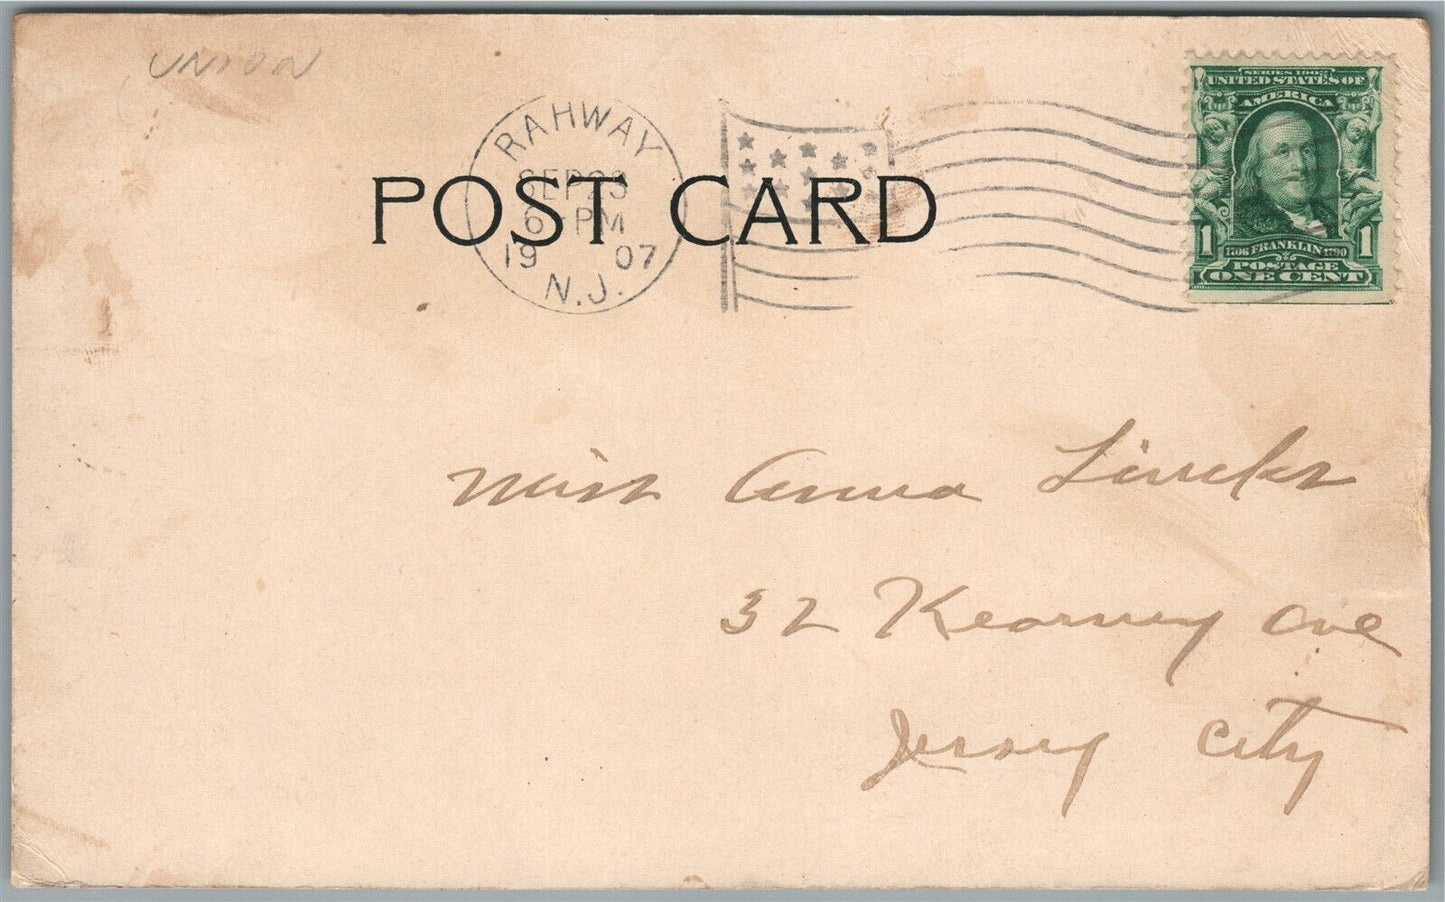 UNION
RAHWAY
SEP 23
6 - PM
1907
N.J.
POST CARD
SERIES 1902
UNITED STATES OF
AMERICA
1706 FRANKLIN 1790
1 1
POSTAGE
ONE CENT
Miss Anna
32 Kearney Ave
Jersey City